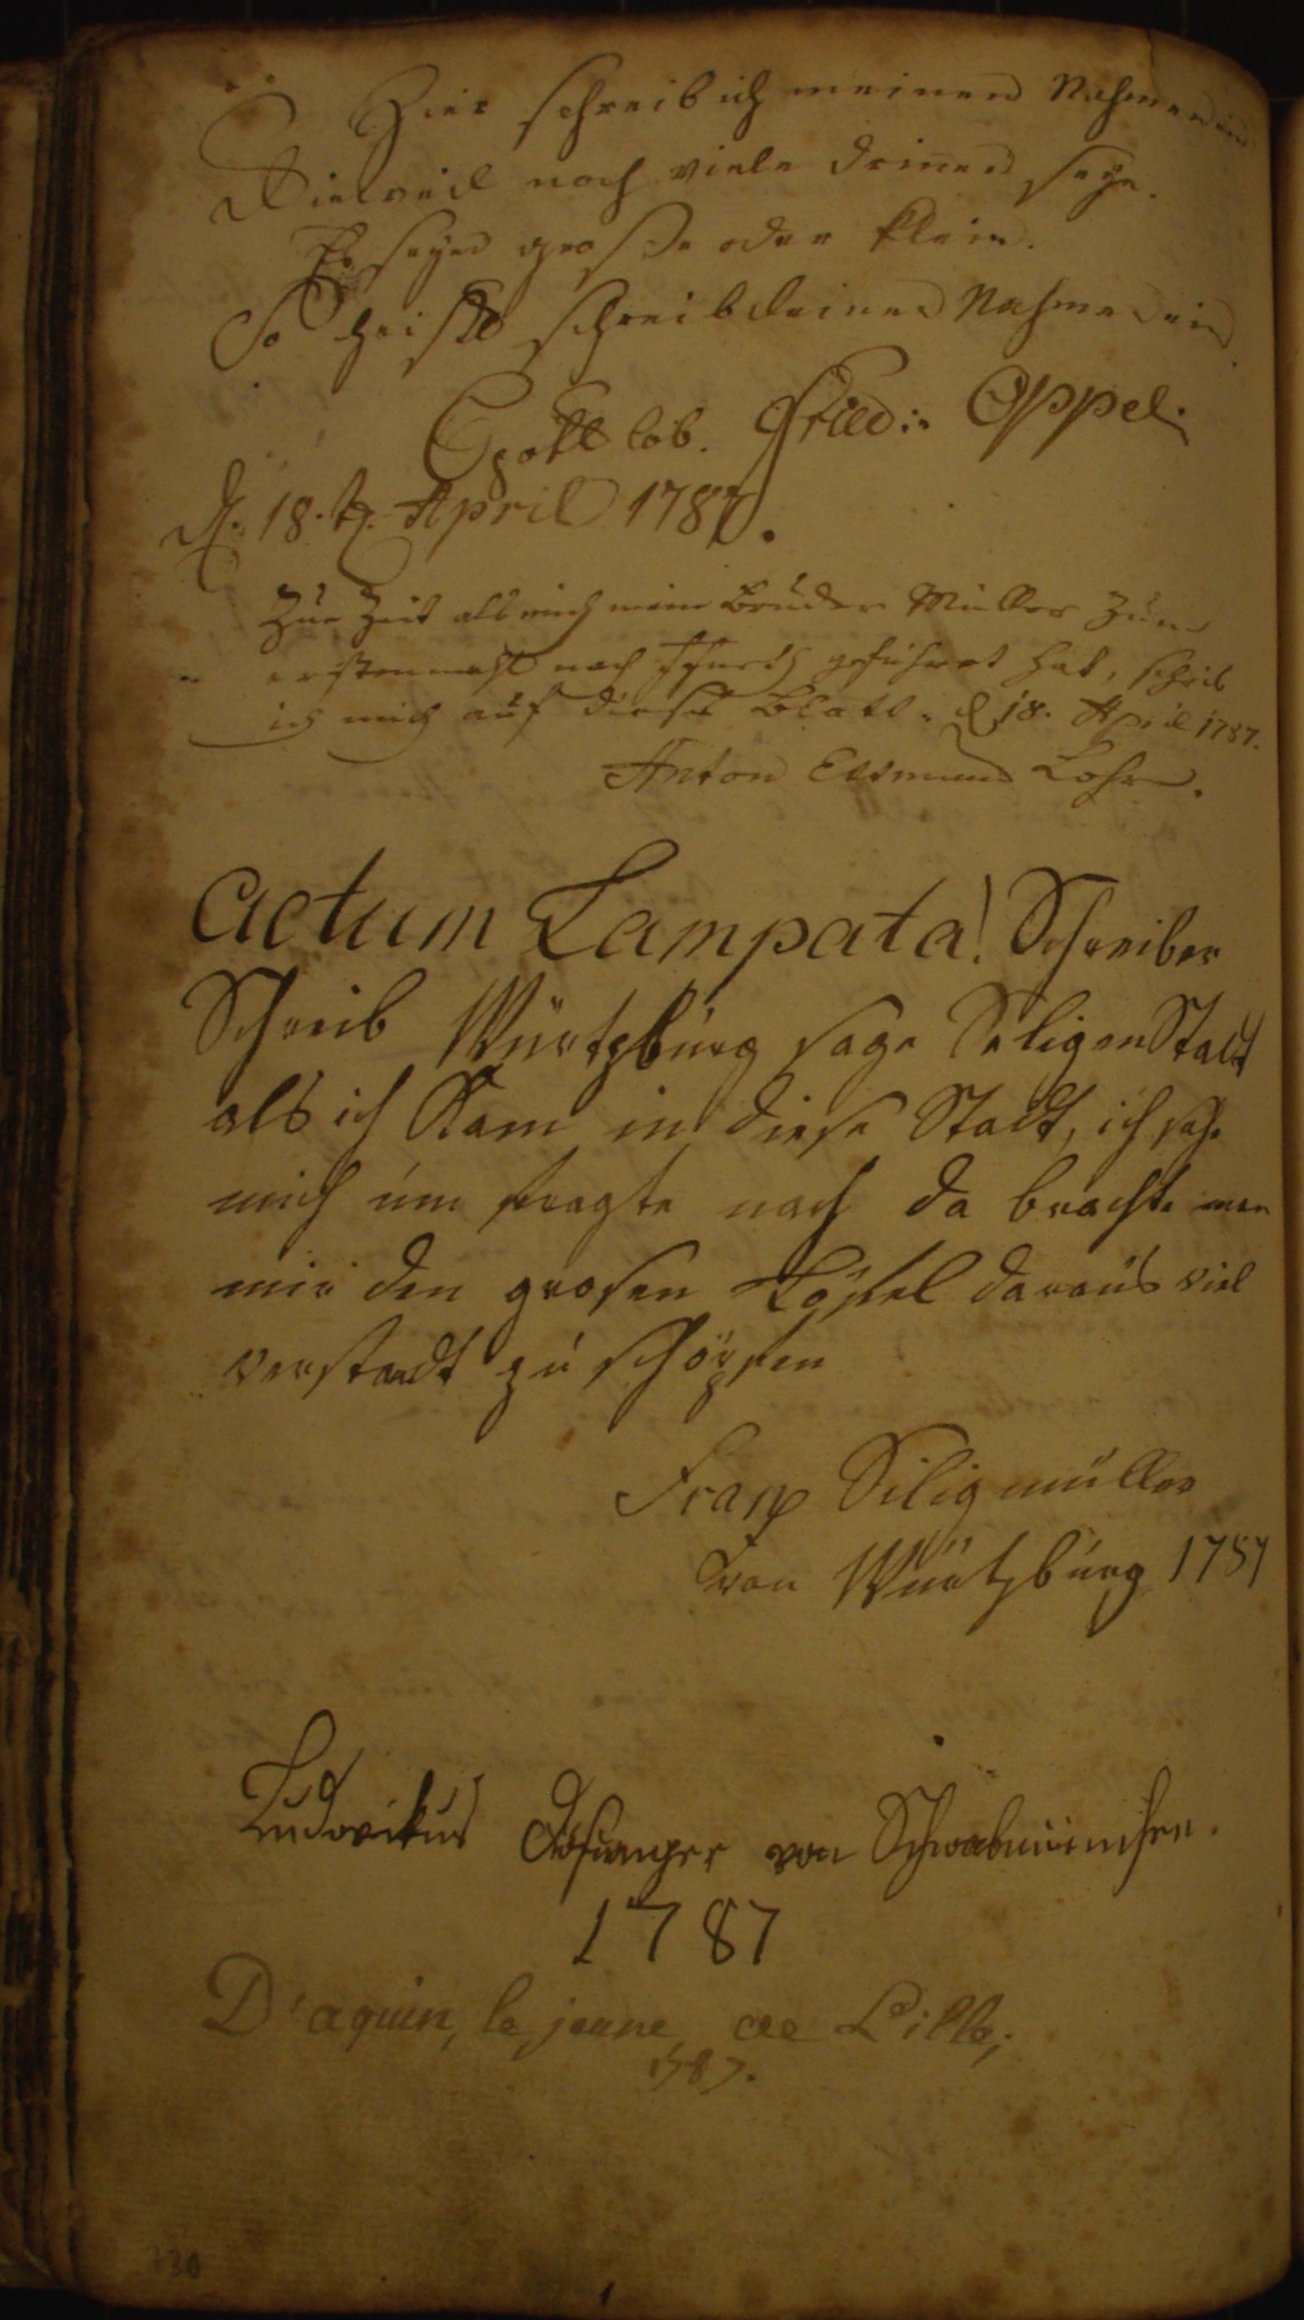 Hier schreib ich meinen Nahmen ein
Dieweil noch viele drinen seyn.
Es seyen große oder klein.
So heists schreib deinen Nahmen ein
Gottlob. Fried: Oppel
d. 18. t. April 1787.
Zur Zeit als mich mein Bruder Müller zum
erstenmahl nach geführet hat, schrieb
ich mich auf dieses Blatt. d 18. April 1787.
Anton Lohr.
Actum Lampata! Schreiber
Schreib Würtzburg sage Seligenstadt
als ich Kam in diese Stadt, ich sahe
mich um fragte nach da brachte man
mir den grosen Löffel daraus viel
verstandt zu schöpfen
Frantz Siligmüller
von Würtzburg 1787
Ludovikus von Schwabmünchen.
1787
D'aquin, le jeune de Lille,
1787.
230